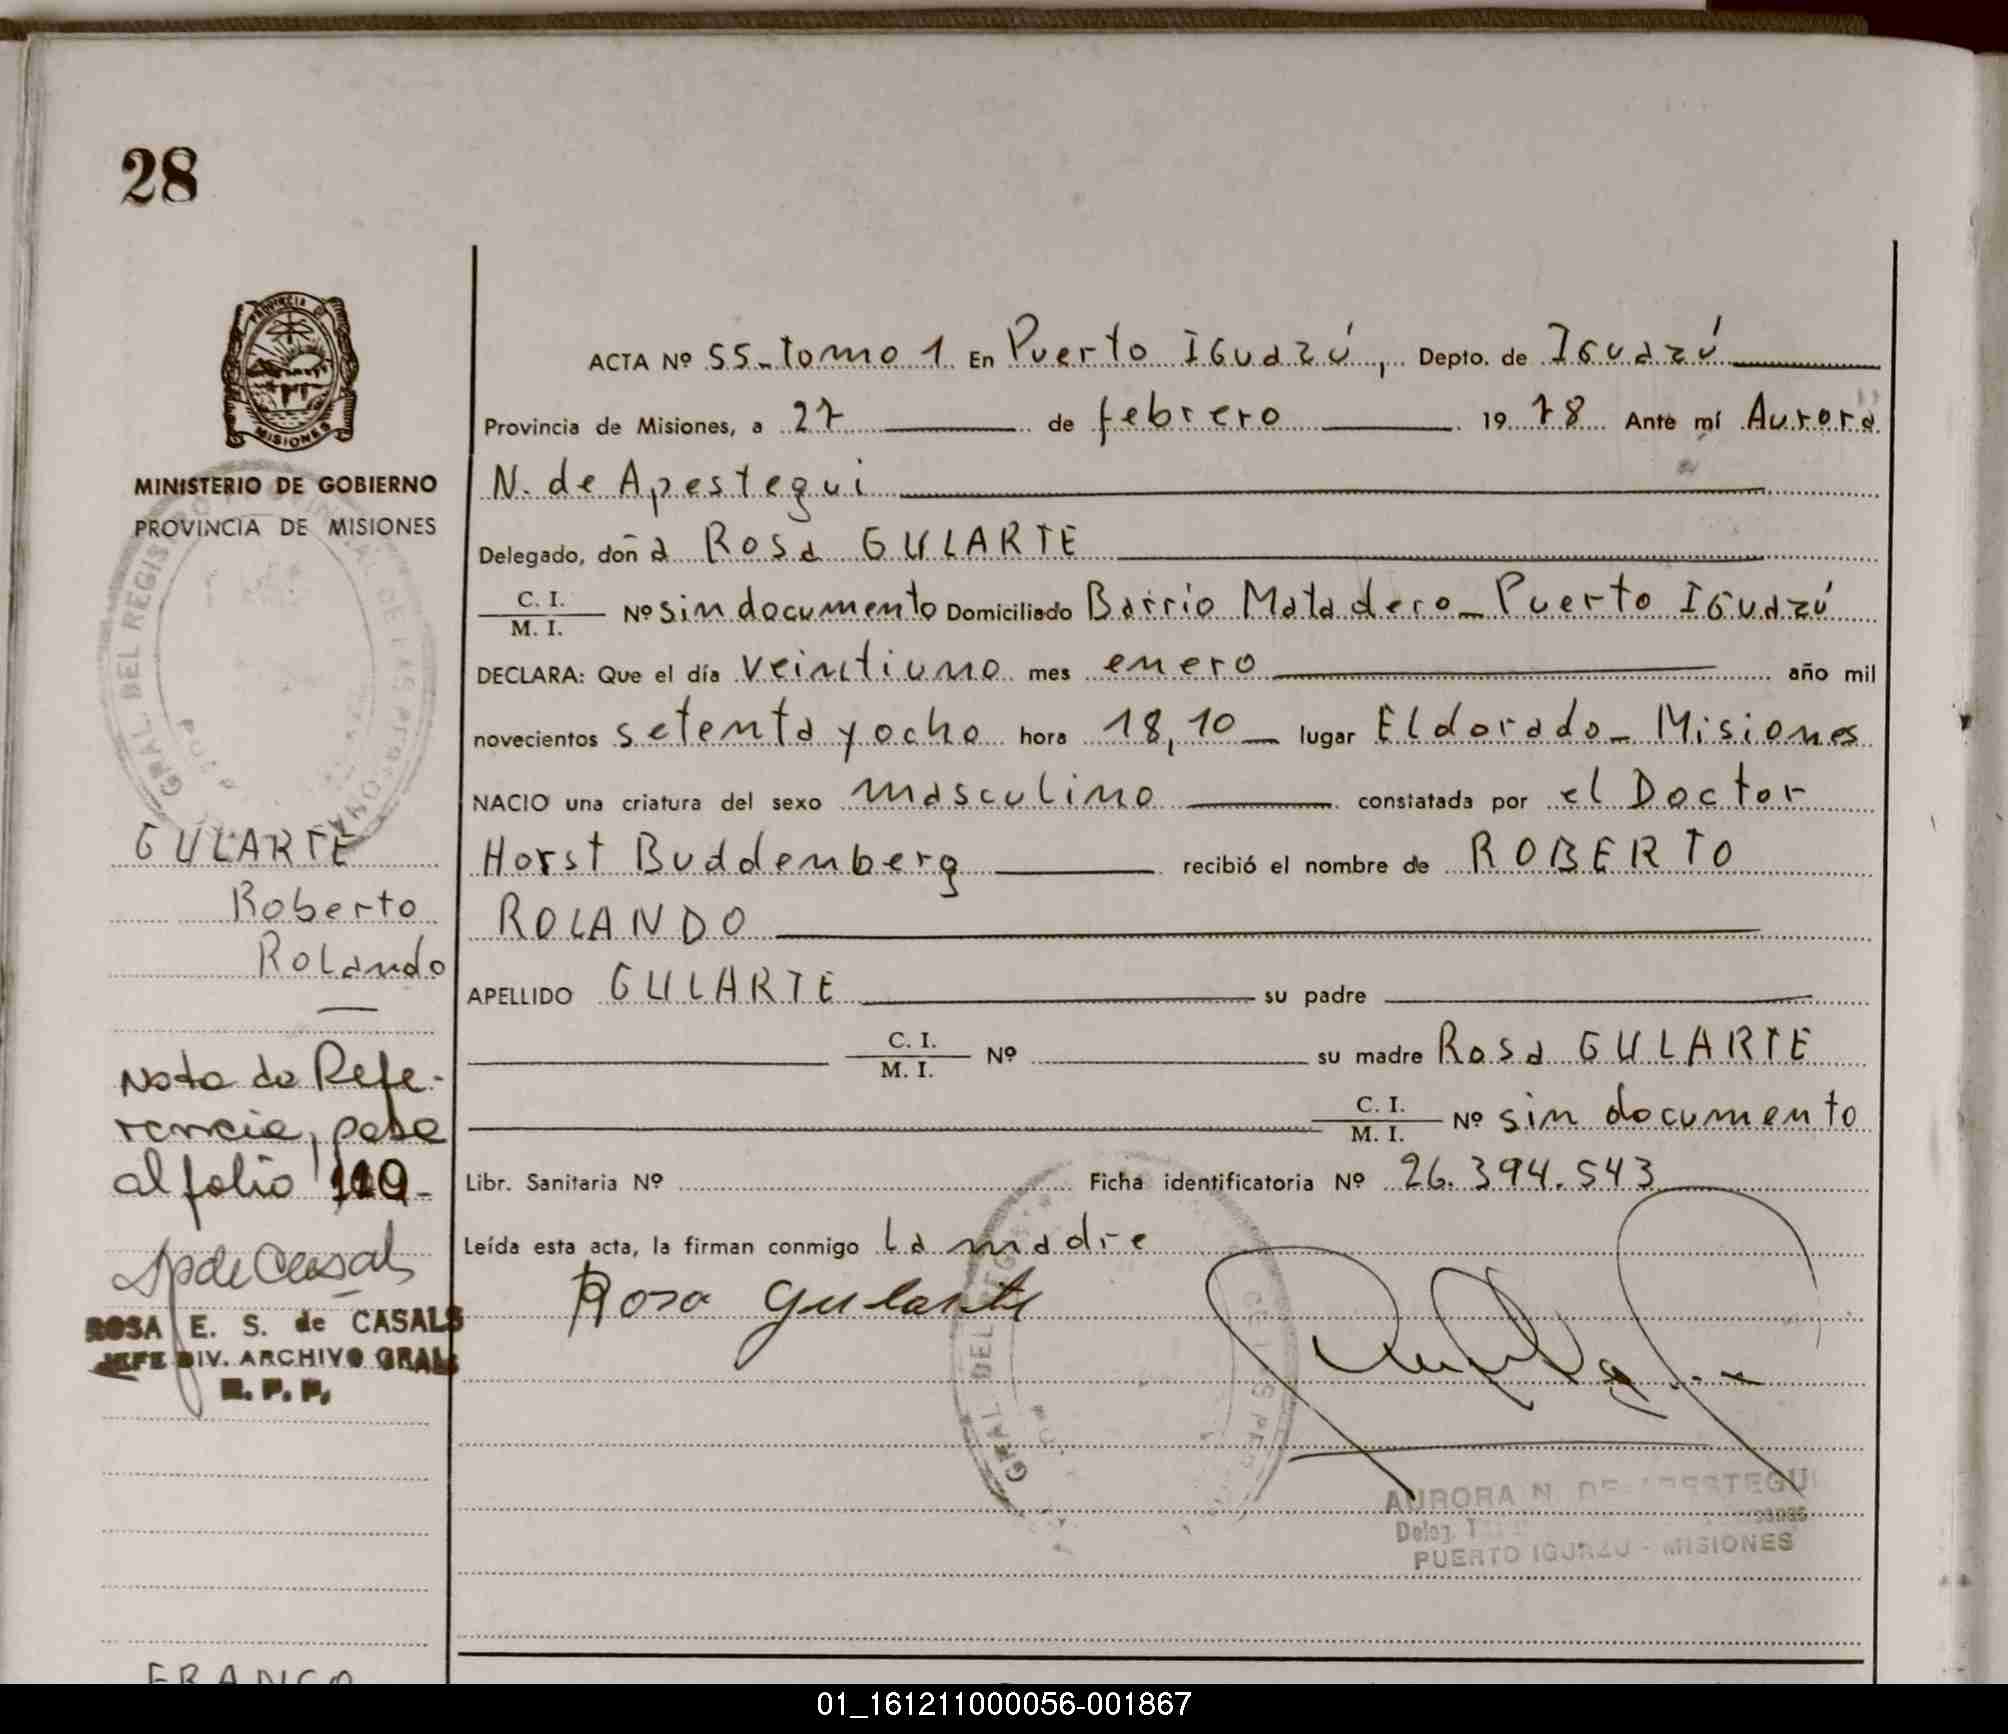 28
PROVINCIA DE
MISIONES
MINISTERIO DE GOBIERNO
PROVINCIA DE MISIONES
GRAL. DEL REGIS
GULARTE
Roberto
Rolando
Nota de Refe-
rencia, pasa
al folio 119-
ROSA E. S. de CASALS
JEFE DIV. ARCHIVO GRAL
R. P. P.
ACTA Nº 55-tomo 1 En Puerto Iguazú, Depto. de Iguazú
Provincia de Misiones, a 27 de febrero 1978 Ante mí Aurora
N. de Apestegui
Delegado, doña Rosa GULARTE
C. I.
M. I. Nº sin documento Domiciliado Barrio Matadero - Puerto Iguazú
DECLARA: Que el día veintiuno mes enero año mil
novecientos setenta y ocho hora 18,10 lugar Eldorado - Misiones
NACIO una criatura del sexo masculino constatada por el Doctor
Horst Buddemberg recibió el nombre de ROBERTO
ROLANDO
APELLIDO GULARTE su padre
C. I.
M. I. Nº su madre Rosa GULARTE
C. I.
M. I. Nº sin documento
Libr. Sanitaria Nº Ficha identificatoria Nº 26.394.543
Leída esta acta, la firman conmigo la madre
Rosa Gularte
GRAL DEL REGIS
AURORA N. DE APESTEGUI
Deleg.
PUERTO IGUAZU - MISIONES
FRANCO
01_161211000056-001867